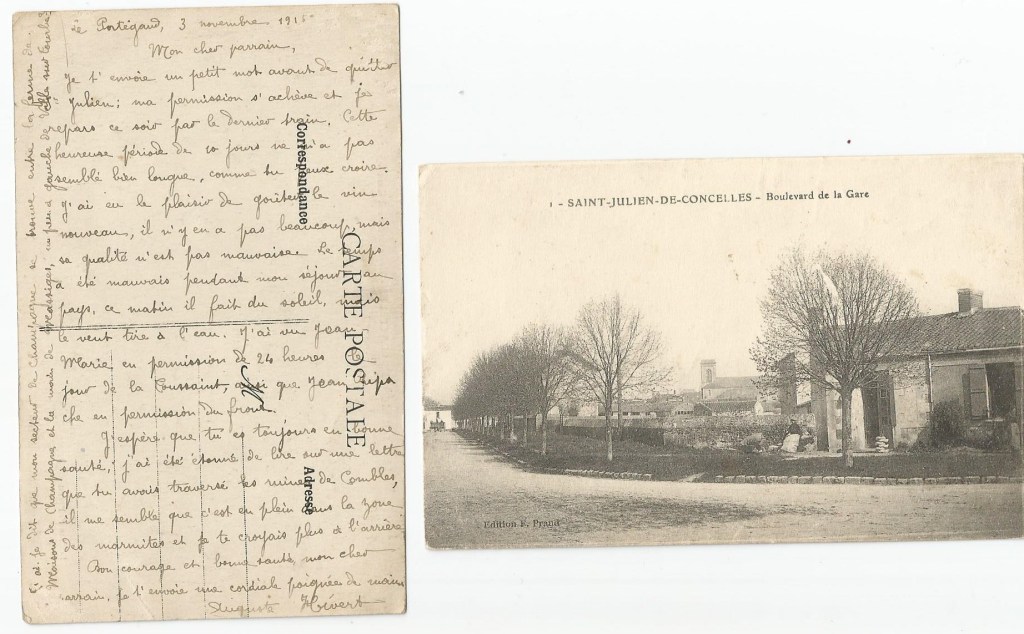 le Portégaud, 3 novembre 191
Mon cher parrain,
Je t'envoie un petit mot avant de quitter
Julien; ma permission s'achève et je
repars ce soir par le dernier train. Cette
heureuse période de 10 jours ne m'a pas
semblé bien longue, comme tu peux croire.
J'ai eu le plaisir de goûter le vin
nouveau, il n'y en a pas beaucoup, mais
sa qualité n'est pas mauvaise. Le temps
a été mauvais pendant mon séjour au
pays, ce matin il fait du soleil, mais
le vent tire à l'eau. J'ai vu Jean
Marie en permission de 24 heures le
jour de la Toussaint, ainsi que Jean
che en permission du front.
J'espère que tu es toujours en bonne
santé, j'ai été étonné de lire sur une lettre
que tu avais traversé les ruines de Combles,
il me semble que c'est en plein dans la zone
des marmites et je te croyais plus à l'arrière
Bon courage et bonne santé, mon cher
arrain, je t'envoie une cordiale poignée de mains
Auguste Hivert
ai-je dit que mon secteur de Champagne se trouve entre la ferme de
Maisons de Champagne et la main de Massiges, un peu à gauche de Ville sur Tourbe
Correspondance
CARTE POSTALE
M
Adresse
1 - SAINT-JULIEN-DE-CONCELLES - Boulevard de la Gare
Edition F. Praud